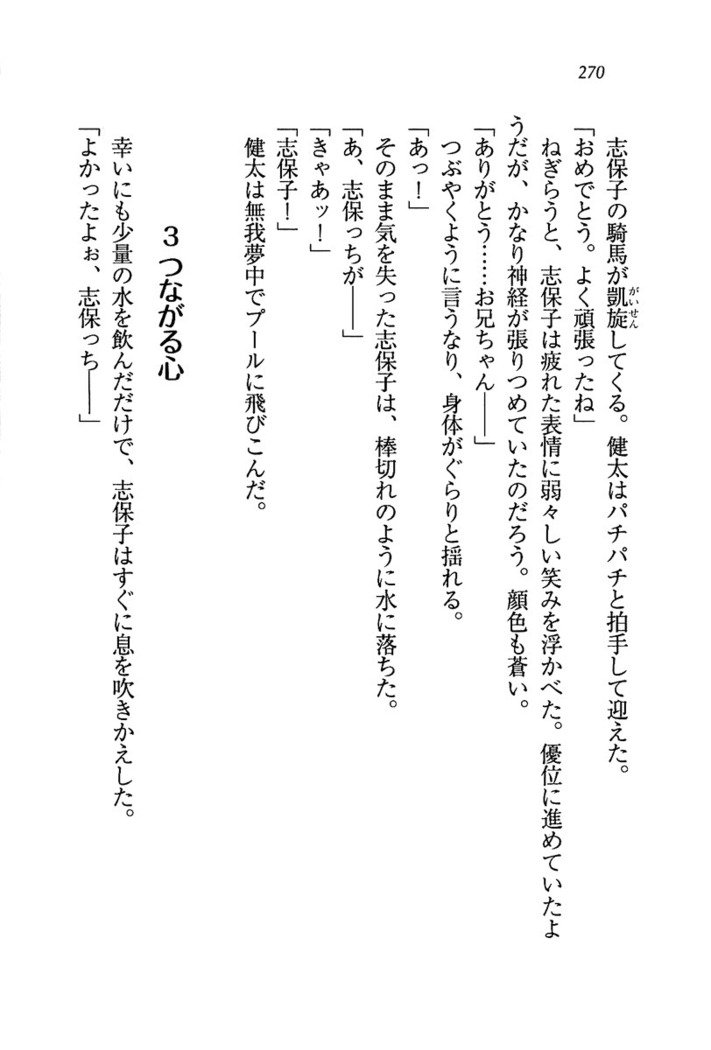 270
志保子の騎馬が凱旋してくる。健太はパチパチと拍手して迎えた。
がいせん
「おめでとう。よく頑張ったね」
ねぎらうと、志保子は疲れた表情に弱々しい笑みを浮かべた。優位に進めていたよ
うだが、かなり神経が張りつめていたのだろう。顔色も蒼い。
「ありがとう……お兄ちゃん――」
つぶやくように言うなり、身体がぐらりと揺れる。
「あっ！」
そのまま気を失った志保子は、棒切れのように水に落ちた。
「あ、志保っちが――」
「きゃあッ！」
「志保子！」
健太は無我夢中でプールに飛びこんだ。
3 つながる心
幸いにも少量の水を飲んだだけで、志保子はすぐに息を吹きかえした。
「よかったよぉ、志保っち――」